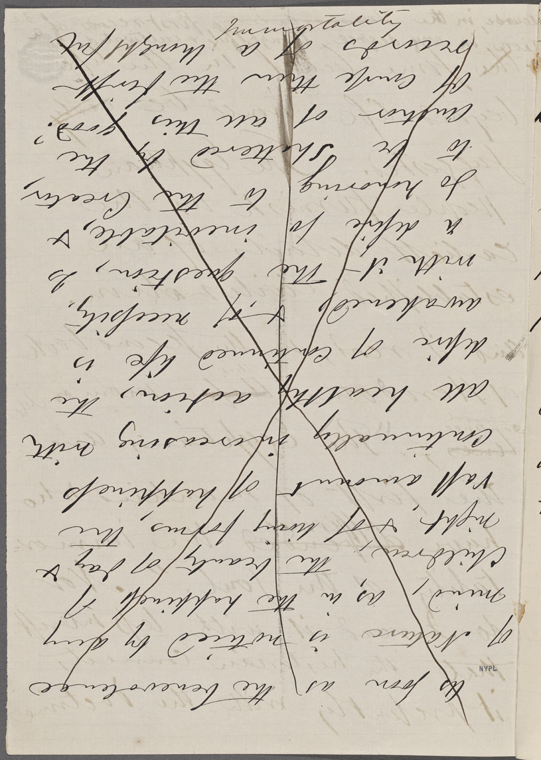 As soon as the benevolence
of Nature is noticed by any
mind, as in the happiness of
children, the beauty of day &
night, & of living forms, the
vast amount of happiness
continually increasing with
all healthy action, the
desire of continued life is
awakened, & of necessity,
with it the question, Is
a desire so inevitable, &
so honoring to the Creator,
to be shattered by the
author of all this good?
Of course then the first
records of a thoughtful
Immortality
NYPL